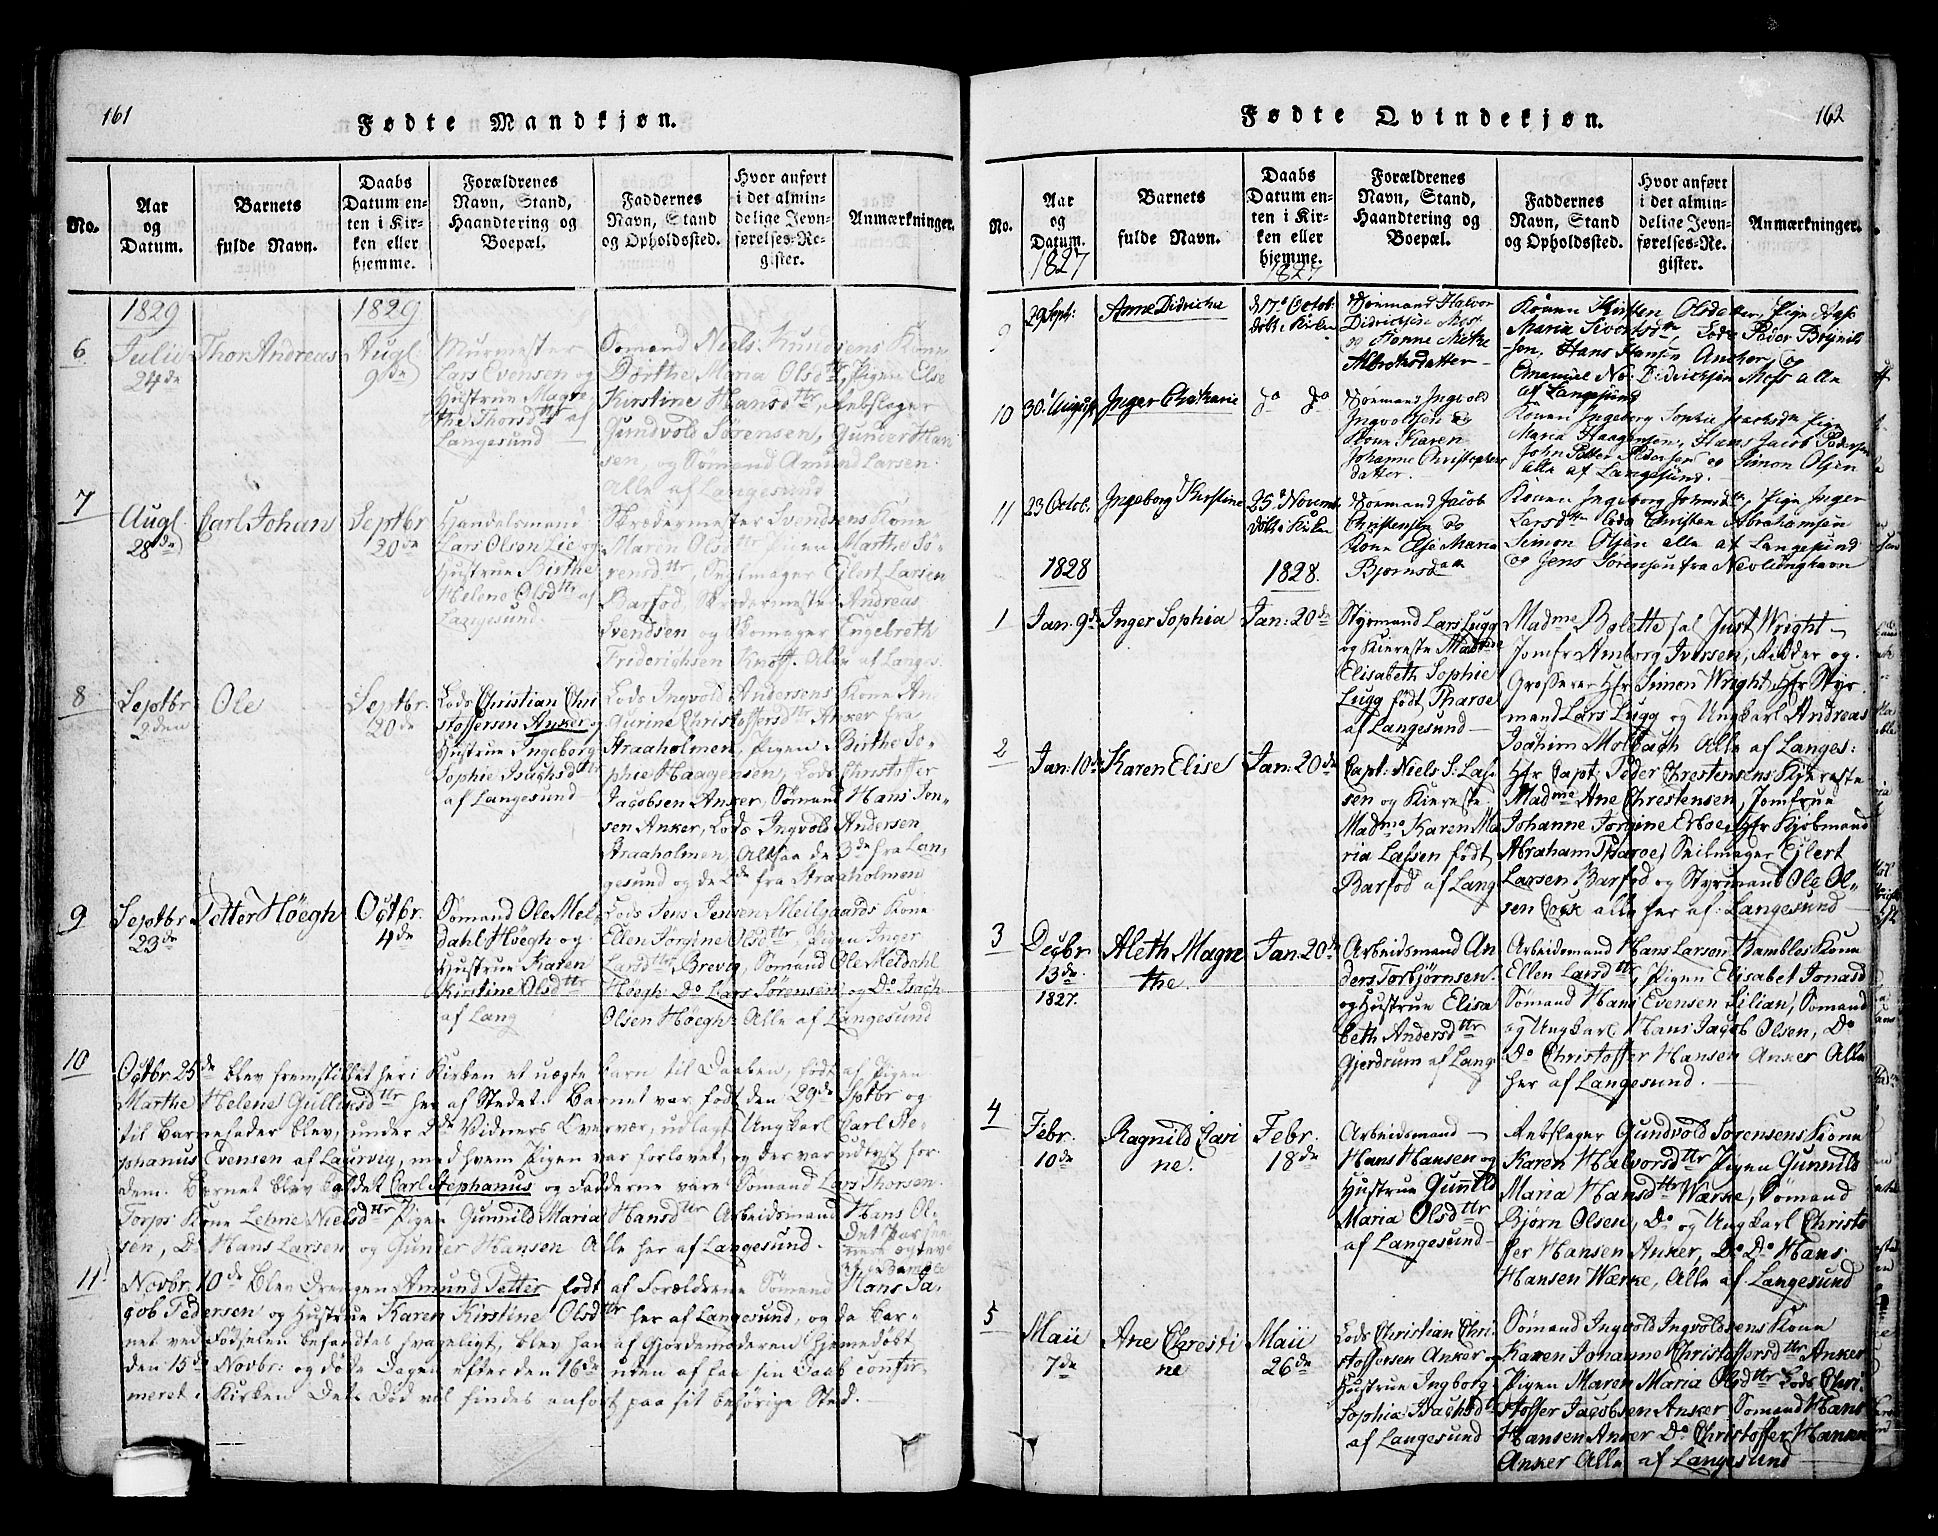 161
Fødte Mandkjøn.
No.
Aar
og
Datum.
Barnets
fulde Navn.
Daabs
Datum en-
ten i Kir-
ken eller
hjemme.
Forældrenes
Navn, Stand,
Haandtering og
Boepæl.
Faddernes
Navn, Stand
og Opholdssted.
Hvor anført
i det almin-
delige Jevn-
førelses-Re-
gister.
Anmærkninger.
1829
1829
6
Julii
24de
Thor Andreas
Augl.
9de
Murmester
Lars Evensen og
Hustrue Magre
the Thorsdttr af
Langesund
Sømand Niels Knudsens Kone
Dorthe Maria Olsdttr, Pigen Else
Kirstine Hansdttr, Rebslager
Gundvold Sørensen, Gunder Han
sen, og Sømand Amund Larsen.
Alle af Langesund
7
Augl.
28de
Carl Johan
Septbr
20de
Handelsmand
Lars Olsen Lie og
Hustrue Birthe
Helene Olsdttr af
Langesund.
Skrædermester Svendsens Kone
Maren Olsdttr Pigen Marthe Sø-
rensdttr, Seilmager Eilert Larsen
Barfod, Skrædermester Andreas
Svendsen og Skomager Engebreth
Friderichsen Knoff. Alle af Langes.
8
Septbr
2den
Ole
Septbr.
20de
Lods Christian Chri
stoffersen Anker og
Hustrue Ingeborg
Sophie Isachsdttr
af Langesund
Lods Ingvold Andersens Kone Ane
Gurine Christoffersdttr Anker fra
Straaholmen, Pigen Birthe So-
phie Haagensen, Lods Christoffer
Jacobsen Anker, Sømand Hans Jen-
sen Anker, Lods Ingvold Andersen
Straaholmen, Altsaa de 3de fra Lan-
gesund og de 2de fra Straaholmen
9
Septbr
23de
Petter Höegh
Octbr.
4de
Sømand Ole Mel
dahl Höegh og
Hustrue Karen
Kirstine Olsdttr
af Lang
Lods Jens Jensen Meilgaards Kone
Ellen Jørgine Olsdttr, Pigen Inger
Larsdttr Brevig, Sømand Ole Meldahl
Höegh Do Lars Sørensen og Do Isach
Olsen Höegh. Alle af Langesund
10
Octbr 25de blev fremstillet her i Kirken et uægte Barn til Daaben, født af Pigen
Marthe Helene Gulliksdttr her af Stedet. Barnet var født den 29de Septbr og
til Barnefader blev, under 2de Vidners Overvær, udlagt Ungkarl Carl Ste-
phanus Evensen af Laurvig, med hvem Pigen var forlovet, og der var udlyst for
dem. Barnet blev kaldet Carl Stephanus og Fadderne vare Sømand Lars Thorsen
Torps Kone Lehne Nielsdttr Pigen Gunnild Maria Hansdttr Arbeidsmand Hans Ol-
sen, Do Hans Larsen og Gunder Hansen Alle her af Langesund.
11
Novbr. 10de Blev Drengen Amund Petter født af Forældrene Sømand Hans Ja-
cob Pedersen og Hustrue Karen Kirstine Olsdttr her af Langesund, og da Bar-
net ved Fødselen befandtes svageligt, blev han af Gjordemoderen hjemedøbt
den 15de Novbr: og døde Dagen efter den 16de uden af faa sin Daab confir
meret i Kirken Dets Død vil findes anført paa sit behørige Sted.
162
Fødte Qvindekjøn.
No.
Aar
og
Datum.
1827
Barnets
fulde Navn.
Daabs
Datum en-
ten i Kir-
ken eller
hjemme.
1827
Forældrenes
Navn, Stand,
Haandtering og
Boepæl.
Faddernes
Navn, Stand
og Opholdssted.
Hvor anført
i det almin-
delige Jevn-
førelses-Re-
gister.
Anmærkninger.
9
29 Sept:
Anne Didricke
d 17de Octob:
døbt i Kirken
Halvor
Didricksen
Albretsdatter
Konen Kirsten Olsdatter, Pige
Maria Sivertsdtr, Lods Peder Brynils
sen, Hans Hansen Ancher, og
Emanuel No: Didricksen alle
af Langesund
10
30 August
Inger Chatharie
do do
Ingvold
Ingvoldsen og
Kone Karen
Johanne Christophers
datter
Konen Ingeborg Sophie Isachsdtr Pige
Maria Haagensen, Hans Jacob Pedersen
John Petter Pedersen og Simon Olsen
alle af Langesund.
11
23 Octob:
Ingeborg Kirstine
25de Novemb
døbt i Kirken
Jacob
Christensen og
Kone Else Maria
Bjørnsdatt
Konen Ingeborg Johnsdttr, Pige Inger
Larsdttr Lods Christen Abrahamsen
Simon Olsen alle af Langesund
og Jens Sørensen fra Nevlunghavn
1828
1828.
1
Jan: 9de
Inger Sophia
Jan: 20de
Styrmand Lars Lugg
og Kiereste Madme
Elisabeth Sophie
Lugg født Tharoe
af Langesund
Madme Bolette sal Just Wright
Jomfr Amborg Iversen, Ridder og
Grosserer Hr Simon Wright, Hr Styr
mand Lars Lugg og Ungkarl Andreas
Joachim Molbach Alle af Langes:
2
Jan: 10de
Karen Elise
Jan: 20de
Capt: Niels S: Las-
sen og Kiereste
Madme Karen Ma
ria Lassen født
Barfod af Lang
Hr Capt: Peder Chrestensens Kjereste
Madme Ane Chrestensen, Jomfrue
Johanne Jørgine Erboe, Hr Kjøbmand
Abraham Tharoe, Seilmager Ejlert
Larsen Barfod og Styrmand Ole Ol-
sen Cock alle her af Langesund
3
Decbr
13de
1827.
Aleth Magre
the
Jan: 20de
Arbeidsmand An
ders Torbjørnsen
og Hustrue Elisa
beth Andersdttr
Gjerdrum af Lang
Arbeidsmand Hans Larsen Bambles Kone
Ellen Larsdttr, Pigen Elisabet Jonasd
Sømand Hans Evensen Silian, Sømand
og Ungkarl Hans Jacob Olsen, Do
Do Christoffer Hansen Anker Alle
her af Langesund.
4
Febr.
10de
Ragnild Cari
ne.
Febr.
18de
Arbeidsmand
Hans Hansen og
Hustrue Gunnild
Maria Olsdttr
af Langesund
Rebslager Gundvold Sørensens Kone
Karen Halvorsdttr Pigen Gunnild
Maria Hansdttr Wærke, Sømand
Bjørn Olsen, Do og Ungkarl Christo
fer Hansen Anker, Do Do Hans
Hansen Wærke, Alle af Langesund
5
Maii
7de
Ane Chresti
ne
Maii
26de
Lods Christian Chri
stoffersen Anker og
Hustrue Ingborg
Sophia Isachsd
af Langesund
Sømand Ingvold Ingvoldsens Kone
Karen Johanne Christoffersdttr Anker
Pigen Maren Maria Olsdttr Lods Chri
stoffer Jacobsen Anker Sømand Hans
Hansen Anker Do Christoffer Hansen
Anker Alle af Langesund